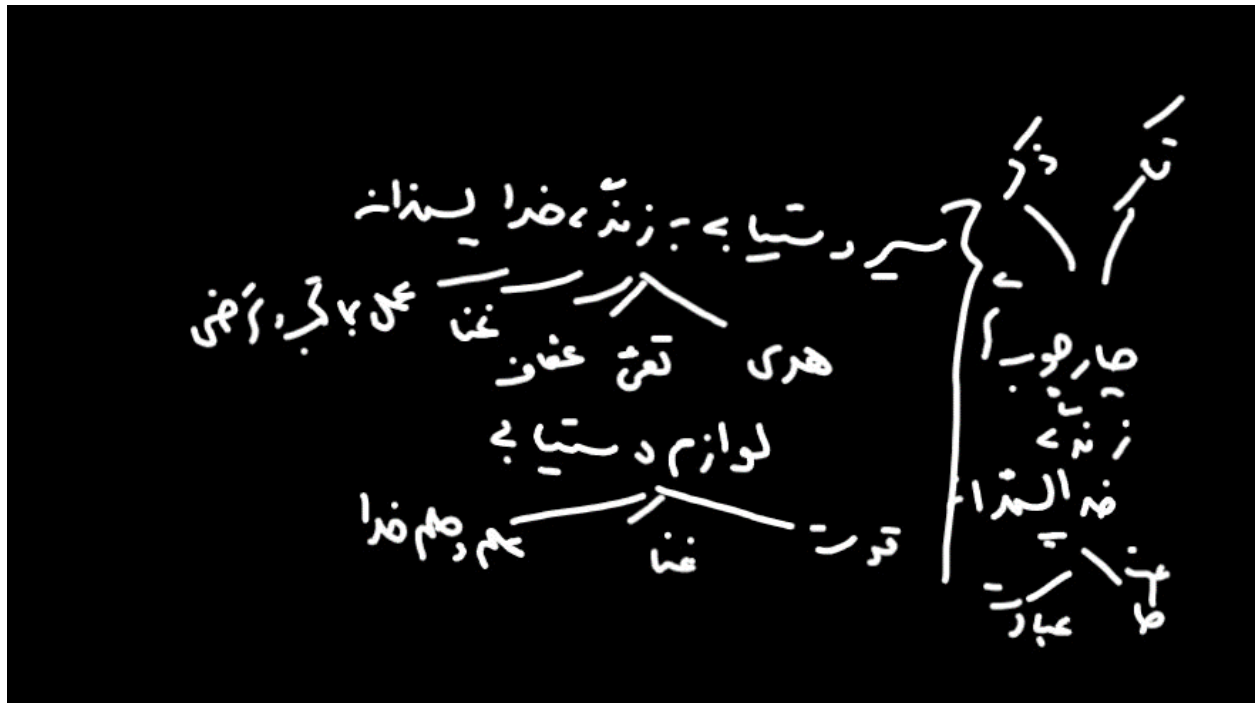 ذکر
چارچوب
زندگی
خداپسندانه
طاعت عبادت
سیر دستیابی به زندگی خداپسندانه
هدی تقی عفاف غنا عمل بما تحب و ترضی
لوازم دستیابی
قدرت غنا علم و حلم خدا